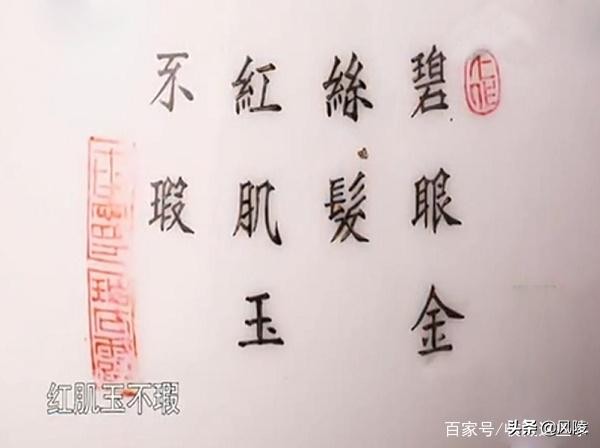 碧眼金
絲髮
紅肌玉
不瑕
红肌玉不瑕
百家号/
头条@风陵